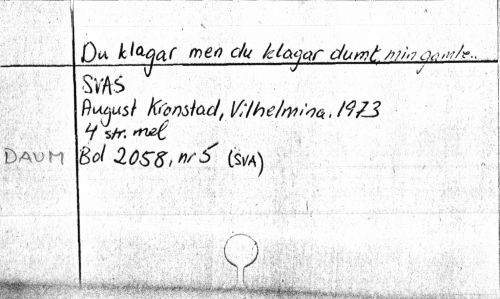 Du klagar men du klagar dumt, min gamle..
SVAS
August Kronstad, Vilhelmina. 1973
4 str. mel
DAUM Bd 2058, nr 5 (SVA)